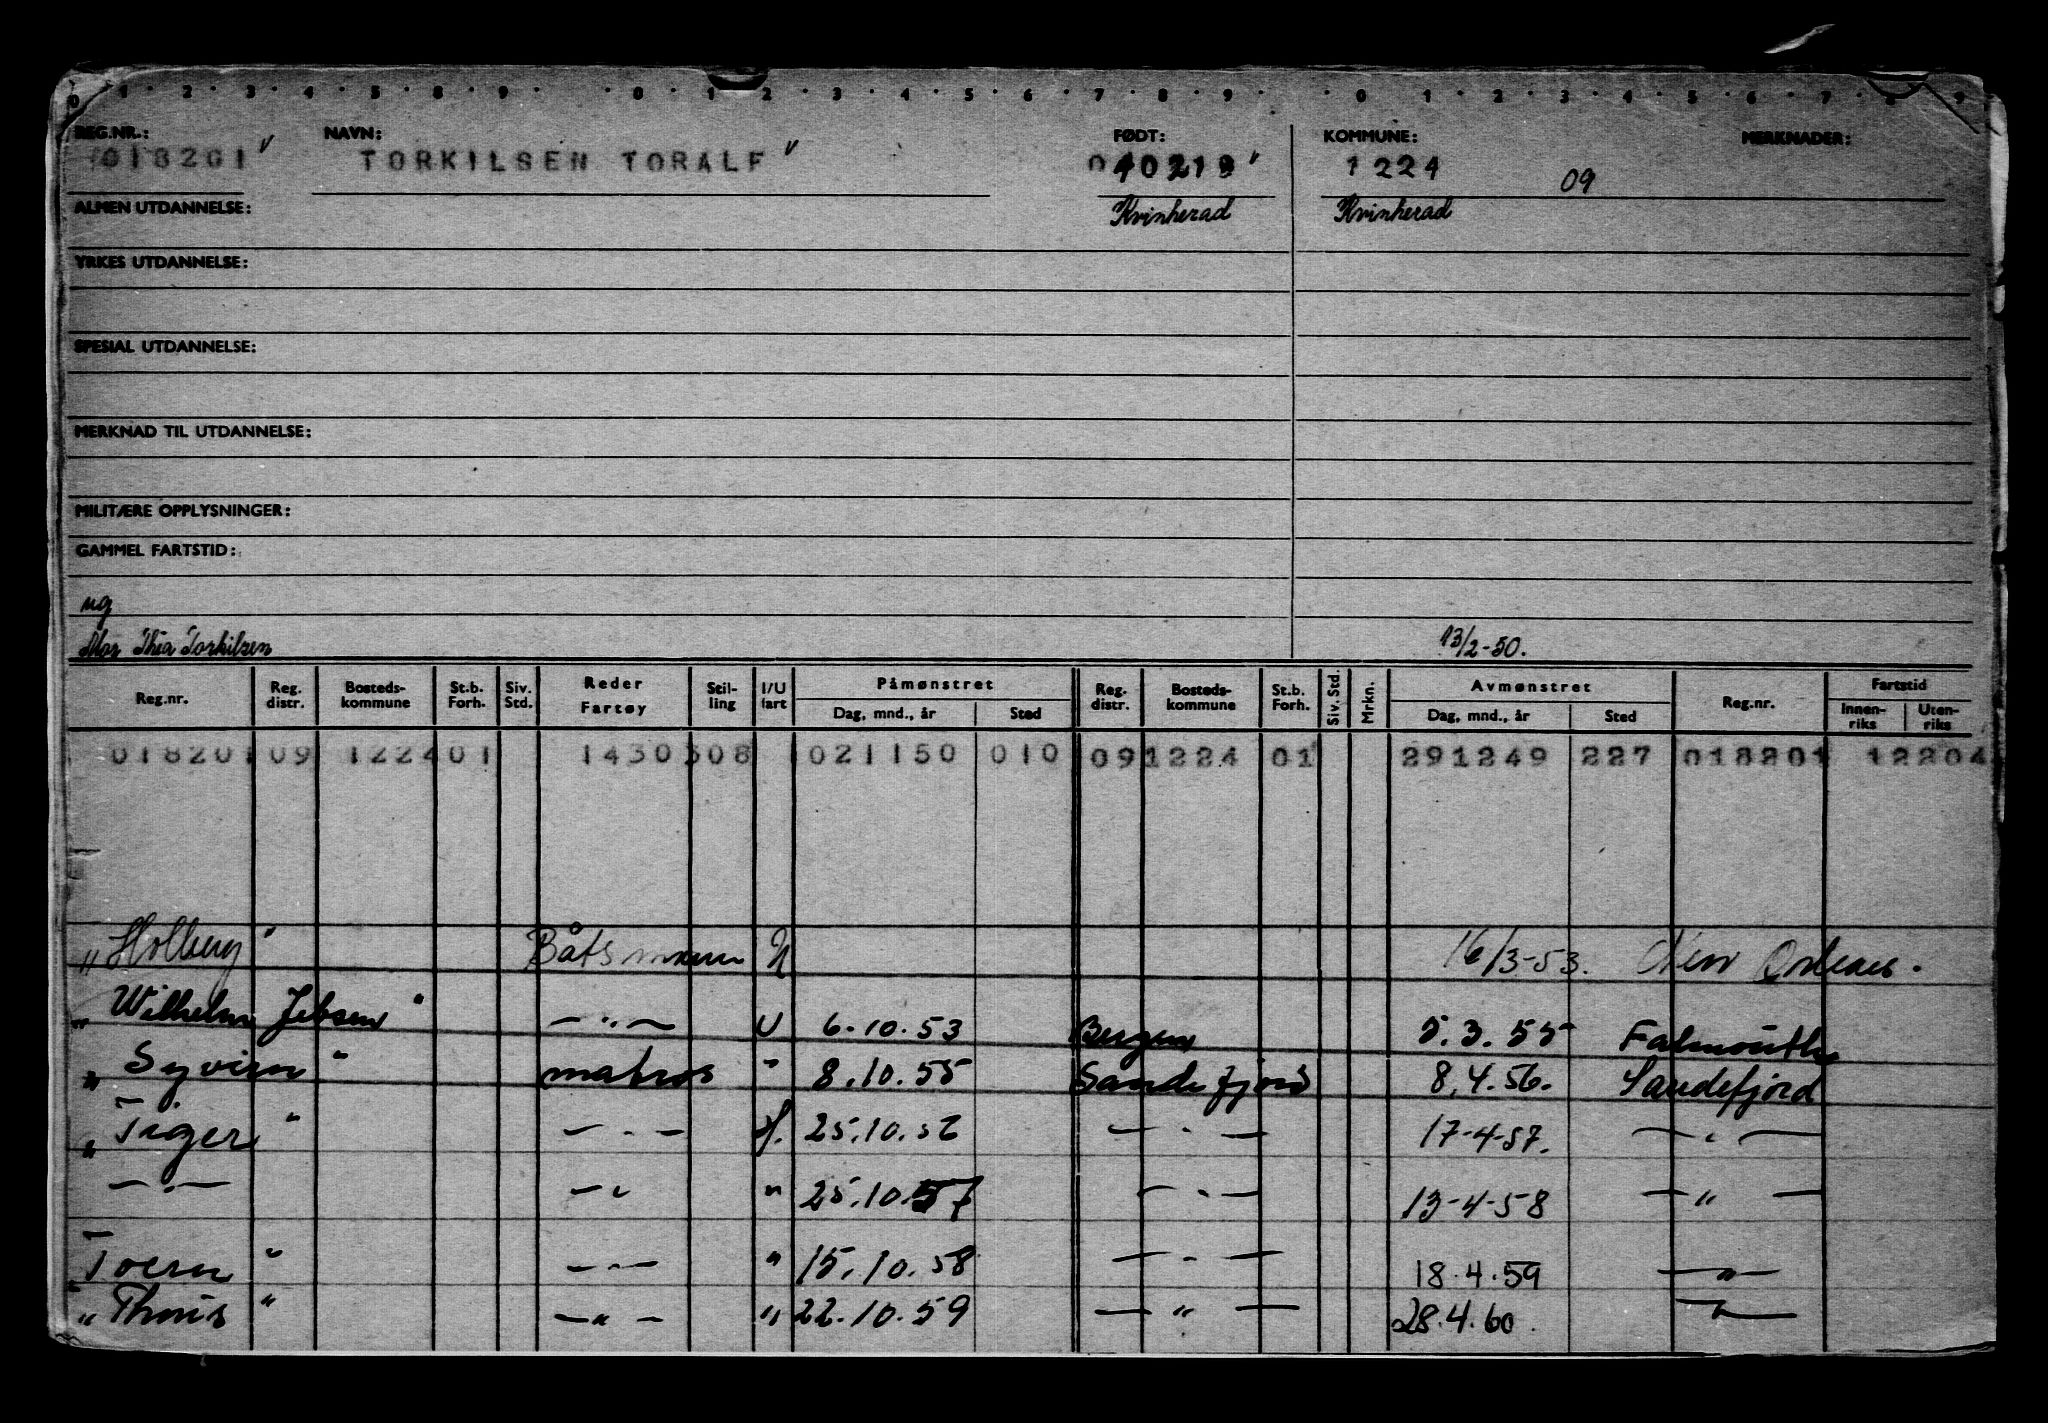 0 1 2 3 4 5 6 8 9 0 1 2 3 4 5 6 7 8 9 0 1 2 3 4 5 6 7 8 9
REG.NR.: NAVN: FØDT: KOMMUNE: MERKNADER:
018201 TORKILSEN TORALF 040219 1224 09
ALMEN UTDANNELSE: Kvinherad Kvinherad
YRKES UTDANNELSE:
SPESIAL UTDANNELSE:
MERKNAD TIL UTDANNELSE:
MILITÆRE OPPLYSNINGER:
GAMMEL FARTSTID:
ug
Mor Thea Torkilsen 13/2-50.
Reg.nr. Reg. distr. Bosteds-kommune St.b. Forh. Siv. Std. Reder Fartøy Stil-ling I/U fart Påmønstret Dag, mnd., år Sted Reg. distr. Bosteds-kommune St.b. Forh. Siv. Std. Mrkn. Avmønstret Dag, mnd., år Sted Reg.nr. Fartstid Innen-riks Uten-riks
018201 09 1224 01 1430 308 021150 010 09 1224 01 291249 227 018201 12204
"Holberg" Båtsmann U 16/3-53. New Orleans.
"Wilhelm Jebsen" — " — U 6.10.53 Bergen 5.3.55 Falmouth
"Syvern" matros " 8.10.55 Sandefjord 8.4.56. Sandefjord
"Tiger" — " — 25.10.56 — " — 17-4-57. — " —
— " — — " " 25.10.57 — " — 13-4-58 — " —
Toern" — " — " 15.10.58 — " — 18.4.59 — " —
"Thoris" — " — " 22.10.59 — " — 28.4.60. — " —